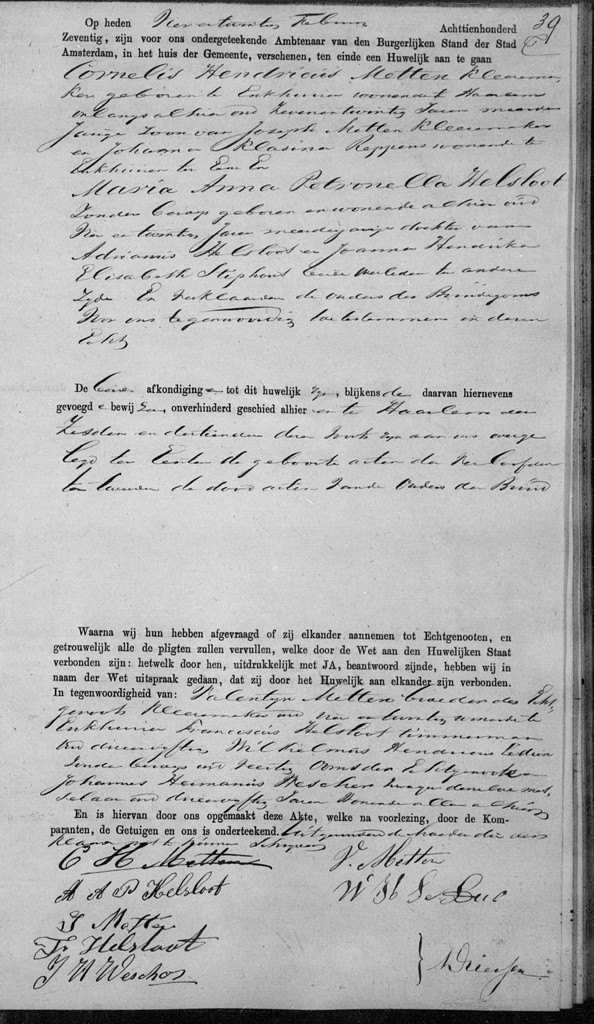 39
Op heden Achttienhonderd
Zeventig, zijn voor ons ondergeteekende Ambtenaar van den Burgerlijken Stand der Stad
Amsterdam, in het huis der Gemeente, verschenen, ten einde een Huwelijk aan te gaan
Cornelis Hendricus Metten Kleermaker
geboren te Enkhuizen wonende te Haarlem
onlangs alhier oud Zevenentwintig Jaren meerder
Jarige Zoon van Joseph Metten Kleermaker
en Johanna Klasina Reppens wonende te
Enkhuizen ter Eene En
Maria Anna Petronella Helsloot
Zonder beroep geboren en wonende alhier oud
Vier en twintig Jaren meerderjarige dochter van
Adrianus Helsloot en Joanna Hendrika
Elisabeth beide overleden te andere
Zyde En verklaarden de ouders des Bruidegoms
Voor ons tegenwoordig toetestemmen in dezen
Echt
De beide afkondigingen tot dit huwelijk zyn, blijkens de daarvan hiernevens
gevoegde bewijzen, onverhinderd geschied alhier en te Haarlem den
Zesden en dertienden dezer Ook zyn aan ons overge
legd ten Eersten de geboorte acten der Verloofden
ten tweeden de dood acten van de Ouders der Bruid
Waarna wij hun hebben afgevraagd of zij elkander aannemen tot Echtgenooten, en
getrouwelijk alle de pligten zullen vervullen, welke door de Wet aan den Huwelijken Staat
verbonden zijn: hetwelk door hen, uitdrukkelijk met JA, beantwoord zijnde, hebben wij in
naam der Wet uitspraak gedaan, dat zij door het Huwelijk aan elkander zijn verbonden.
In tegenwoordigheid van: Valentyn Metten broeder des Echt-
genoots Kleermaker oud Vier en twintig wonende te
Enkhuizen Franciscus Helsloot timmerman
oud drieenvyftig Wilhelmus Hendricus
Zonder beroep oud Veertig Ooms der Echtgenoote en
Johannes Hermanus Weschos Zwager derzelve
oud drieenvyftig Jaren Wonende allen alhier
En is hiervan door ons opgemaakt deze Akte, welke na voorlezing, door de Kom-
paranten, de Getuigen en ons is onderteekend. Uitgenomen de moeder die ver
klaarde niet te kunnen Schryven
C H Metten V. Metten
M A P Helsloot W H Le Duc
J Metten
Fr Helsloot
J H Weschos